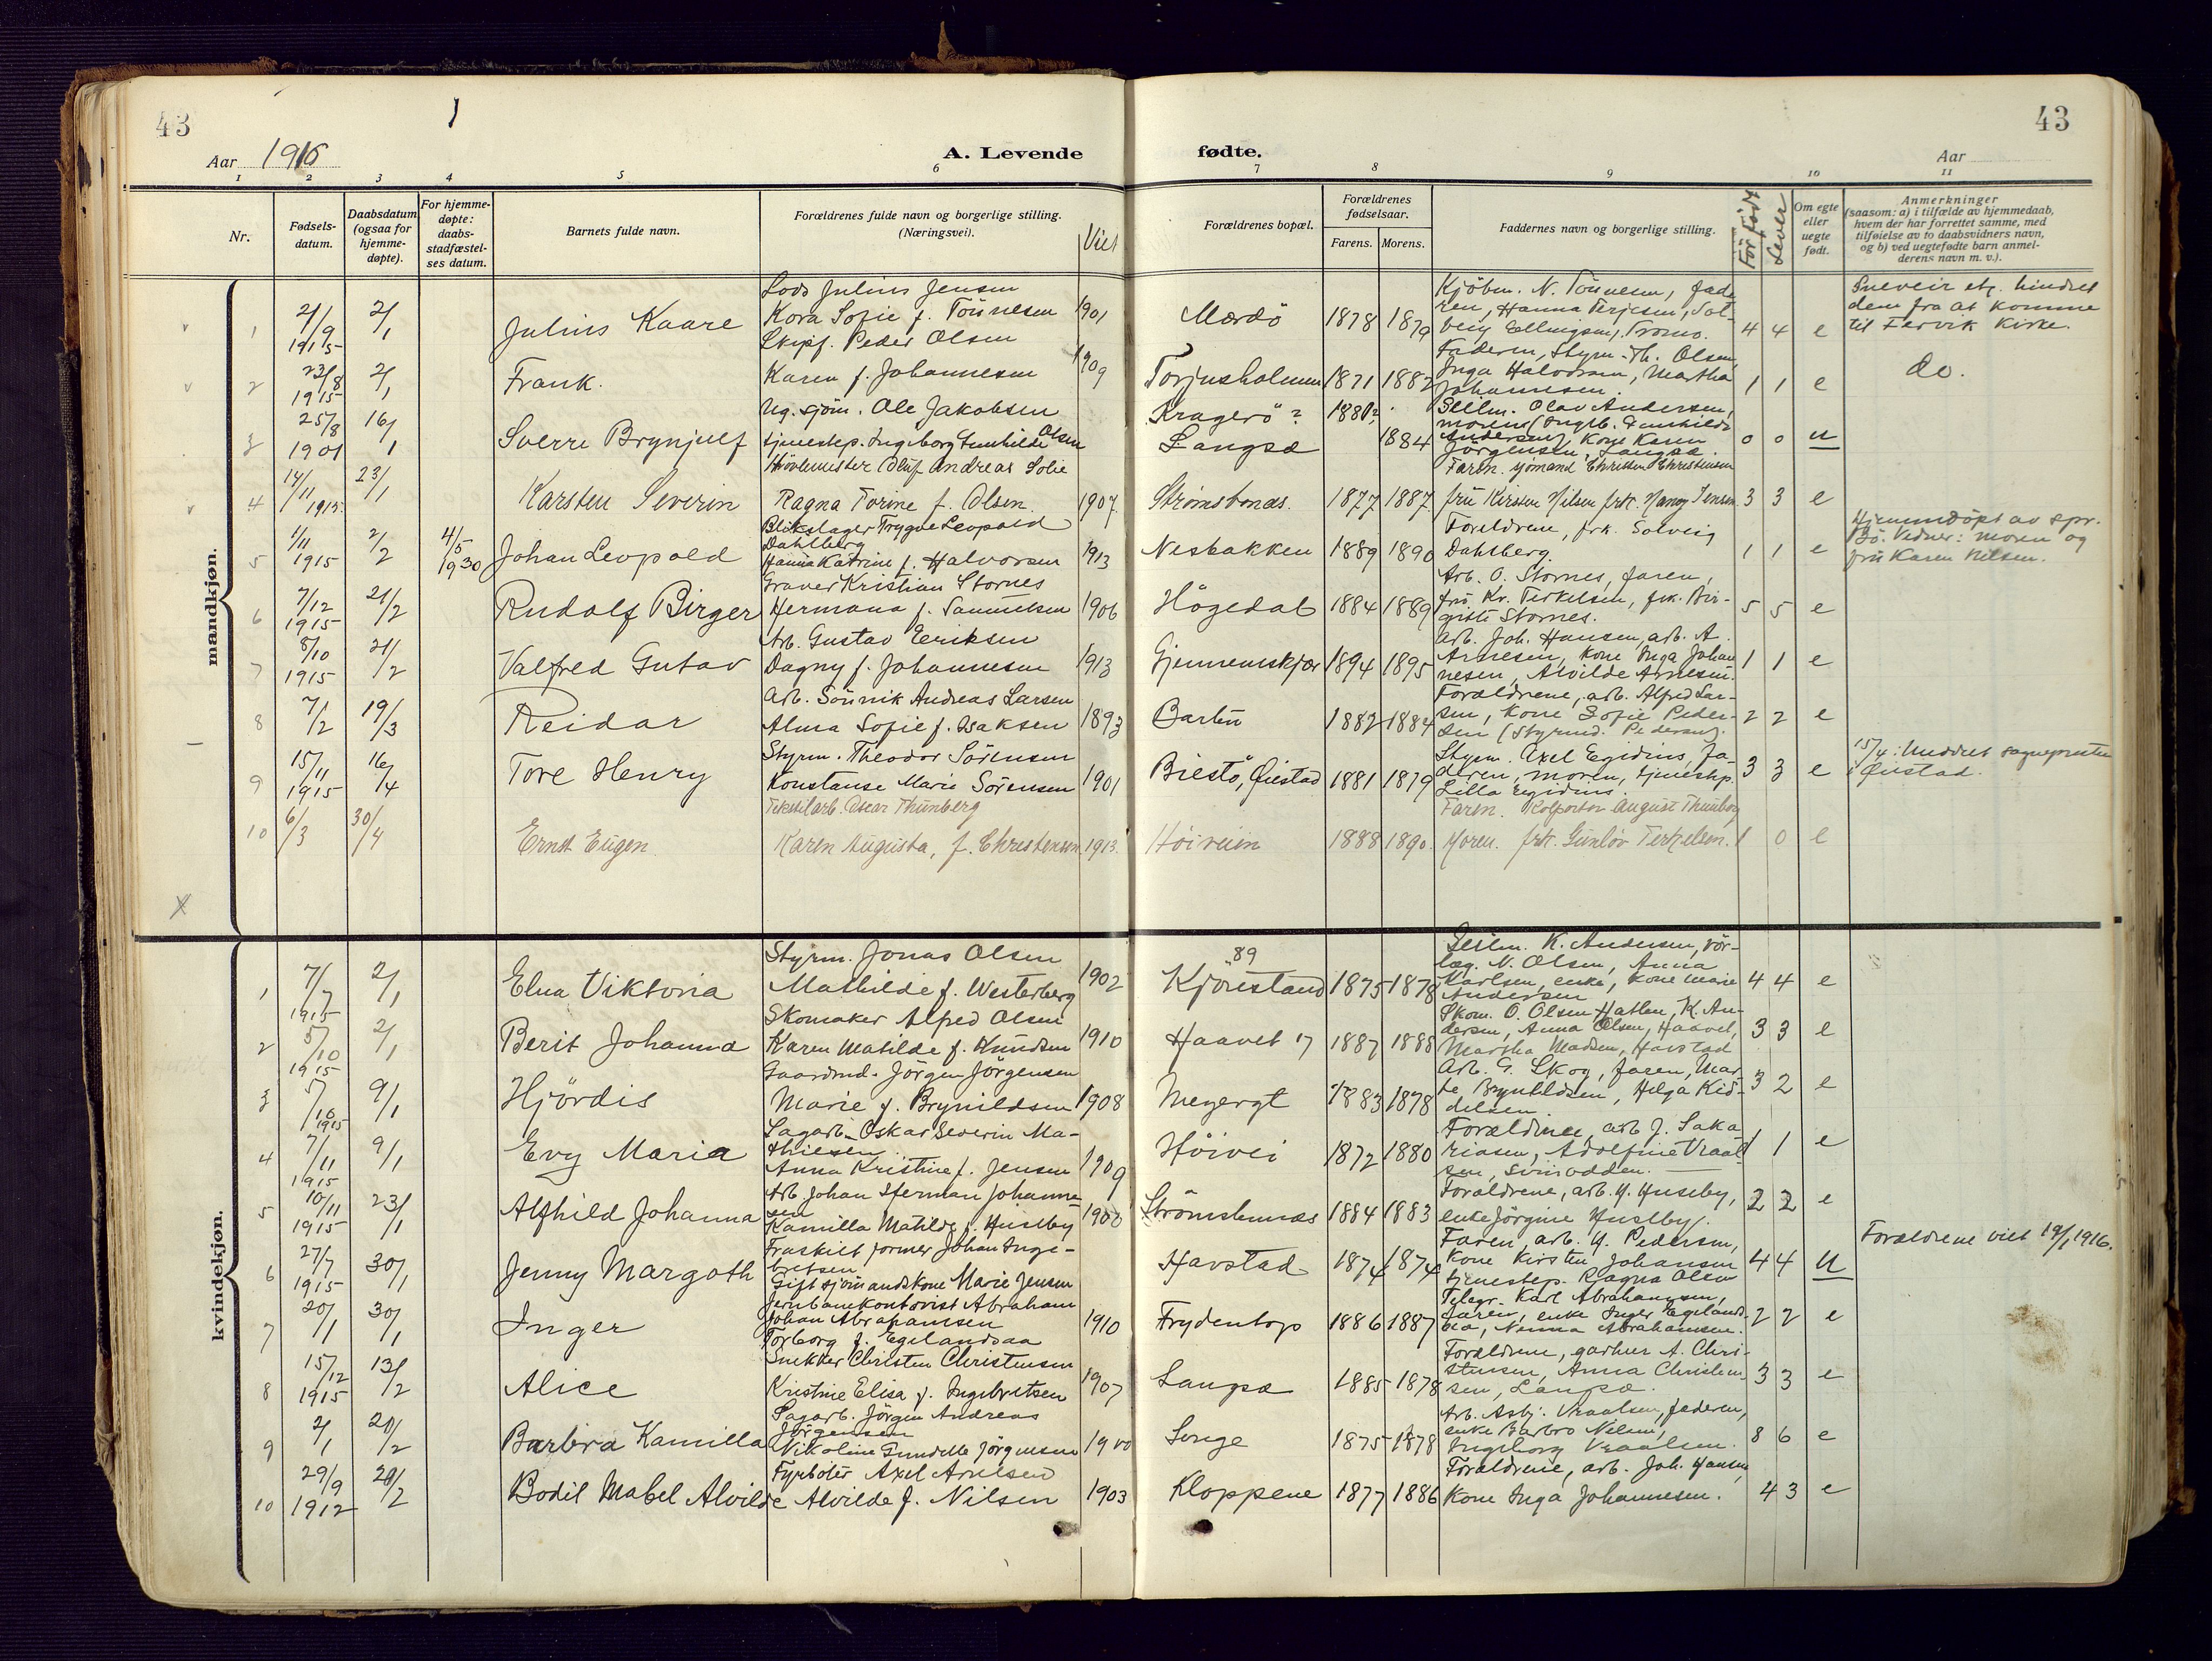 43
43
Aar 1916
A. Levende fødte.
Aar
1 2 3 4 5 6 7 8 9 10 11
Nr.
Fødsels-
datum.
Daabsdatum
(ogsaa for
hjemme-
døpte).
For hjemme-
døpte:
daabs-
stadfæstel-
ses datum.
Barnets fulde navn.
Forældrenes fulde navn og borgerlige stilling.
(Næringsvei).
Viet
Forældrenes bopæl.
Forældrenes
fødselsaar.
Farens. Morens.
Faddernes navn og borgerlige stilling.
Før født
Lever
Om egte
eller
uegte
født.
Anmerkninger
(saasom: a) i tilfælde av hjemmedaab,
hvem der har forrettet samme, med
tilføielse av to daabsvidners navn,
og b) ved uegtefødte barn anmel-
derens navn m. v.).
mandkjøn.
1 21/9 1915 2/1 Julius Kaare
Lods Julius Jensen
Kora Sofie f. Tönnesen 1901
Mærdö 1878 1879
Kjöbm. N. Tönnesen, fade
ren, Hanna Terjesen, Sol-
veig Ellingsen, Tromö. 4 4 e
Sneveir etc. hindret
dem fra at komme
til Fervik Kirke.
2 23/8 1915 2/1 Frank.
Skipf. Peder Olsen
Karen f. Johannesen 1909
Torjusholmen 1871 1882
Faderen, Styrm. Th. Olsen,
Inga Halvorsen, Martha
Johannesen. 1 1 e
do.
3 25/8 1901 16/1 Sverre Brynjulf
Ug. sjöm. Ole Jakobsen
tjenestep. Ingeborg Gunhilde Olsen
Kragerö? 1880?
Langsæ 1884
Seilm. Olav Andersen,
moren (Ingeb. Gunhilde
Andersen), Kone Karen
Jörgensen, Langsæ. 0 0 u
4 14/11 1915 23/1 Karsten Severin
Hövlemester Oluf Andreas Solie
Ragna Torine f. Olsen 1907.
Strömsbonæs. 1877 1887
Faren. sjömand Christen Christensen
fru Kirsten Nilsen frk. Nanny Jensen 3 3 e
5 1/11 1915 2/2 4/5 1930 Johan Leopold
Blikslager Trygve Leopold
Dahlberg
Hanna Katrine f. Halvorsen 1913
Nesbakken 1889 1890
Forældrene, frk. Solveig
Dahlberg. 1 1 e
Hjemmedöpt av spr.
Bö. Vidner: moren og
fru Karen Nilsen.
6 7/12 1915 21/2 Rudolf Birger
Graver Kristian Stornes
Hermana f. Samuelsen 1906
Högedal 1884 1889
Arb. O. Stornes, faren,
fru Kr. Terkelsen, frk. Bir-
gitte Stornes. 5 5 e
7 8/10 1915 21/2 Valfred Gustav
Arb. Gustav Eeriksen
Dagny f. Johannesen 1913
Gjennemskjær 1894 1895
Arb. Joh. Hansen, arb. A.
Arnesen, Kone Inga Johan
nesen, Alvilde Arnesen. 1 1 e
8 7/2 19/3 Reidar
Arb. Sönnik Andreas Larsen
Alma Sofie f. Isaksen 1893
Barbu 1882 1884
Forældrene, arb. Alfred Lar-
sen, Kone Sofie Peder-
sen (Styrmd. Pedersen). 2 2 e
9 15/11 1915 16/4 Tore Henry
Styrm. Theodor Sörensen
Konstanse Marie Sörensen 1901
Biestö, Öiestad 1881 1879
Styrm. Axel Egidius, fa-
deren, moren, tjenestep.
Lilla Egidius. 3 3 e
15/4: Meddelt sogneprsten
i Öiestad.
10 6/3 30/4 Ernst Eugen.
Tekstilarb. Oscar Thunberg
Karen Augusta, f. Christensen 1913.
Höiveien 1888 1890.
Faren. Kolportør August Thunberg
Moren. frk. Gunlöv Terkelsen. 1 0 e
kvindekjøn.
1 7/7 1915 2/1 Elna Viktoria
Styrm. Jonas Olsen
Mathilde f. Westerberg 1902
89
Kjörestand 1875 1878
Seilm. K. Andersen, rör-
læg. N. Olsen, Anna
Karlsen, enke, Kone Marie
Andersen 4 4 e
2 5/10 1915 2/1 Berit Johanna
Skomaker Alfred Olsen
Karen Matilde f. Knudsen 1910
Haavet 17 1887 1888
Skom. O. Olsen Hatlen, K. An-
dersen, Anna Olsen, Haavet,
Martha Madsen, Havstad 3 3 e
3 5/10 1915 9/1 Hjördis
Gaardmd. Jörgen Jörgensen
Marie f. Brynildsen 1908
Meyergt 1883 1878
Arb. G. Skog, faren, Mar-
te Brynildsen, Helga Kid-
delsen. 3 2 e
4 7/11 1915 9/1 Evy Maria
Sagarb. Oskar Severin Ma-
thiesen
Anna Kristine f. Jensen 1909
Höivei 1872 1880
Forældrene, arb. J. Saka
riasen, Adolfine Vraal-
sen, Svinodden. 1 1 e
5 10/11 1915 23/1 Alfhild Johanna
Arb. Johan Herman Johanne
sen
Kamilla Matilde f. Huseby
Strömsbunæs 1884 1883
Forældrene, arb. H. Huseby,
enke Jörgine Huseby. 2 2 e
6 27/7 1915 30/1 Jenny Margoth
Fraskilt former Johan Inge-
bretsen
Gift sjömandskone Marie Jensen
Havstad 1874 1874
Faren, arb. H. Pedersen,
Kone Kirsten Johansen
tjenestep. Ragna Olsen 4 4 u
Forældrene viet 19/1 1916.
7 20/1 30/1 Inger
Jernbanekontorist Abraham
Johan Abrahamsen
Torborg f. Egelandsaa 1910
Frydentop 1886 1887
Telegr. Karl Abrahamsen,
faren, enke Inger Egelands
aa, Nanna Abrahamsen. 2 2 e
8 15/12 1915 13/2 Alice
Snekker Christen Christensen
Kristine Elisa f. Ingebretsen 1907
Langsæ 1885 1878
Forældrene, gartner A. Chri-
stensen, Anna Christen
sen, Langsæ. 3 3 e
9 2/1 20/2 Barbra Kamilla
Sagarb. Jörgen Andreas
Jörgensen
Nikoline Gundelle Jörgensen 1900
Songe 1875 1878
Arb. Asbj. Vraalsen, faderen,
enke Barbro Nilsen,
Ingeborg Vraalsen. 8 6 e
10 29/9 1912 20/2 Bodil Mabel Alvilde
Fyrböter Axel Arnesen
Alvilde f. Nilsen 1903
Kloppene 1877 1886
Forældrene, arb. Joh. Hansen,
Kone Inga Johannesen. 4 3 e